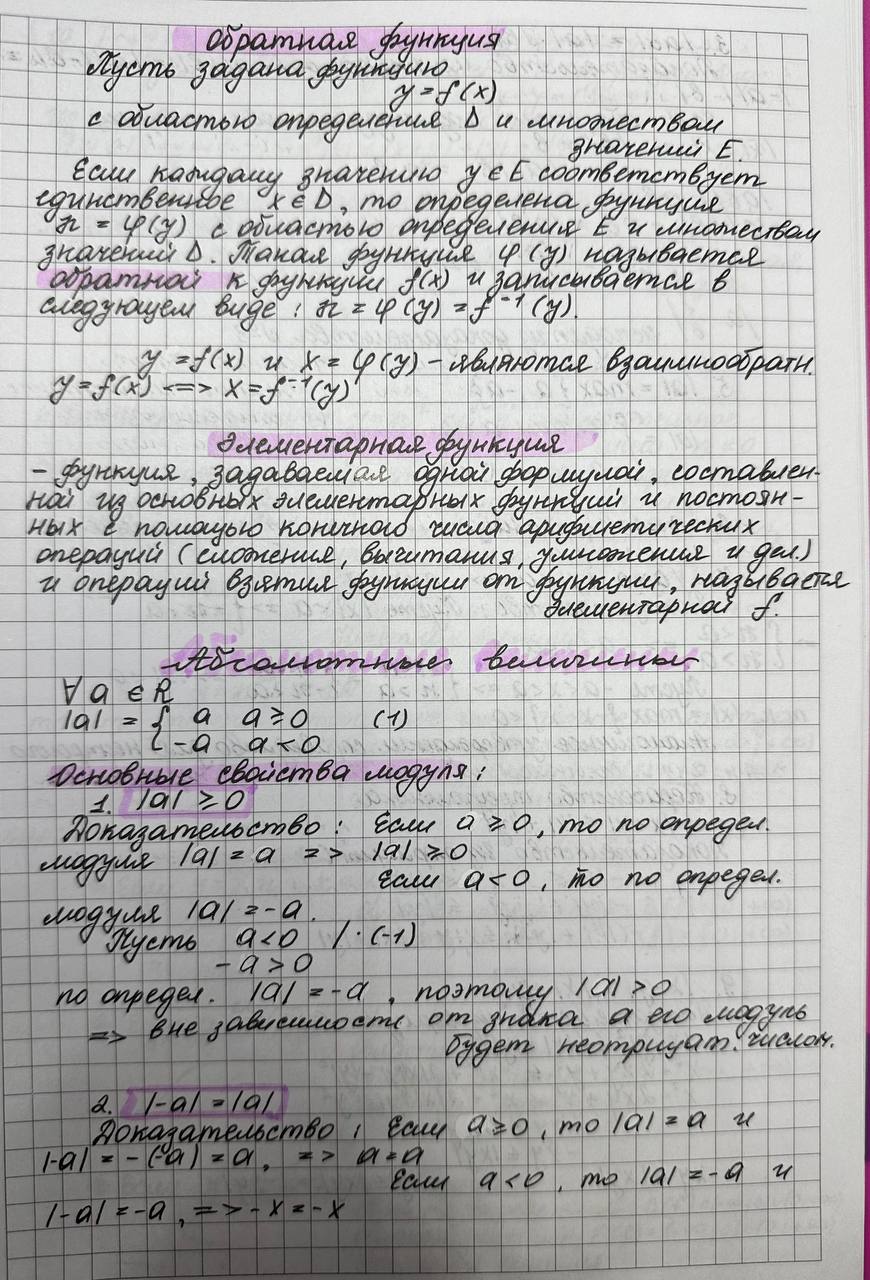 Обратная функция
Пусть задана функцию
y = f(x)
с областью определения D и множеством
значений E.
Если каждому значению y ∈ E соответствует
единственное x ∈ D, то определена функция
x = φ(y) с областью определения E и множеством
значений D. Такая функция φ(y) называется
обратной к функции f(x) и записывается в
следующем виде: x = φ(y) = f⁻¹(y).
y = f(x) и x = φ(y) – являются взаимнообратн.
y = f(x) <=> x = f⁻¹(y)
Элементарная функция
– функция, задаваемая одной формулой, составлен-
ной из основных элементарных функций и постоян-
ных с помощью конечного числа арифметических
операций (сложения, вычитания, умножения и дел.)
и операций взятия функции от функции, называется
элементарной f.
Абсолютные величины
∀ a ∈ R
|a| = { a a ≥ 0 (1)
{ -a a < 0
Основные свойства модуля:
1. |a| ≥ 0
Доказательство: Если a ≥ 0, то по определ.
модуля |a| = a => |a| ≥ 0
Если a < 0, то по определ.
модуля |a| = -a.
Пусть a < 0 / · (-1)
-a > 0
по определ. |a| = -a, поэтому |a| > 0
=> вне зависимости от знака a его модуль
будет неотрицат. числом.
2. |-a| = |a|
Доказательство: Если a ≥ 0, то |a| = a и
|-a| = -(-a) = a, => a = a
Если a < 0, то |a| = -a и
|-a| = -a, => -x = -x